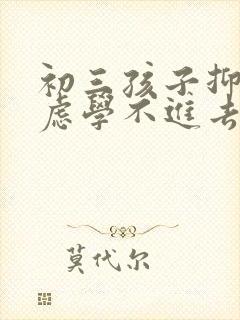 初三孩子抑
虑學不進去
莫代尔